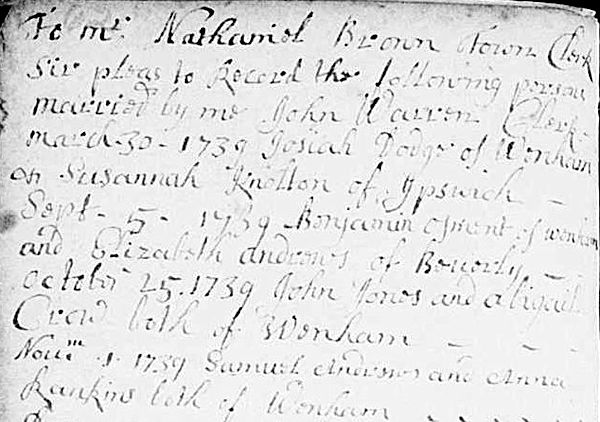 To mr. Nathaniel Brown Town Clerk
Sir pleas to Record the following person
married by me John Warren Clerk
march-30-1739 Josiah Dodge of Wenham
& Susannah Knolton of Ipswich
Sept-5-1739 Benjamin Osment of wenham
and Elizabeth andrews of Beverly
october 25.1739 John Jones and abigail
both of Wenham
Novm. 1 1739 Samuel Andrews and Anna
Rankins both of Wenham